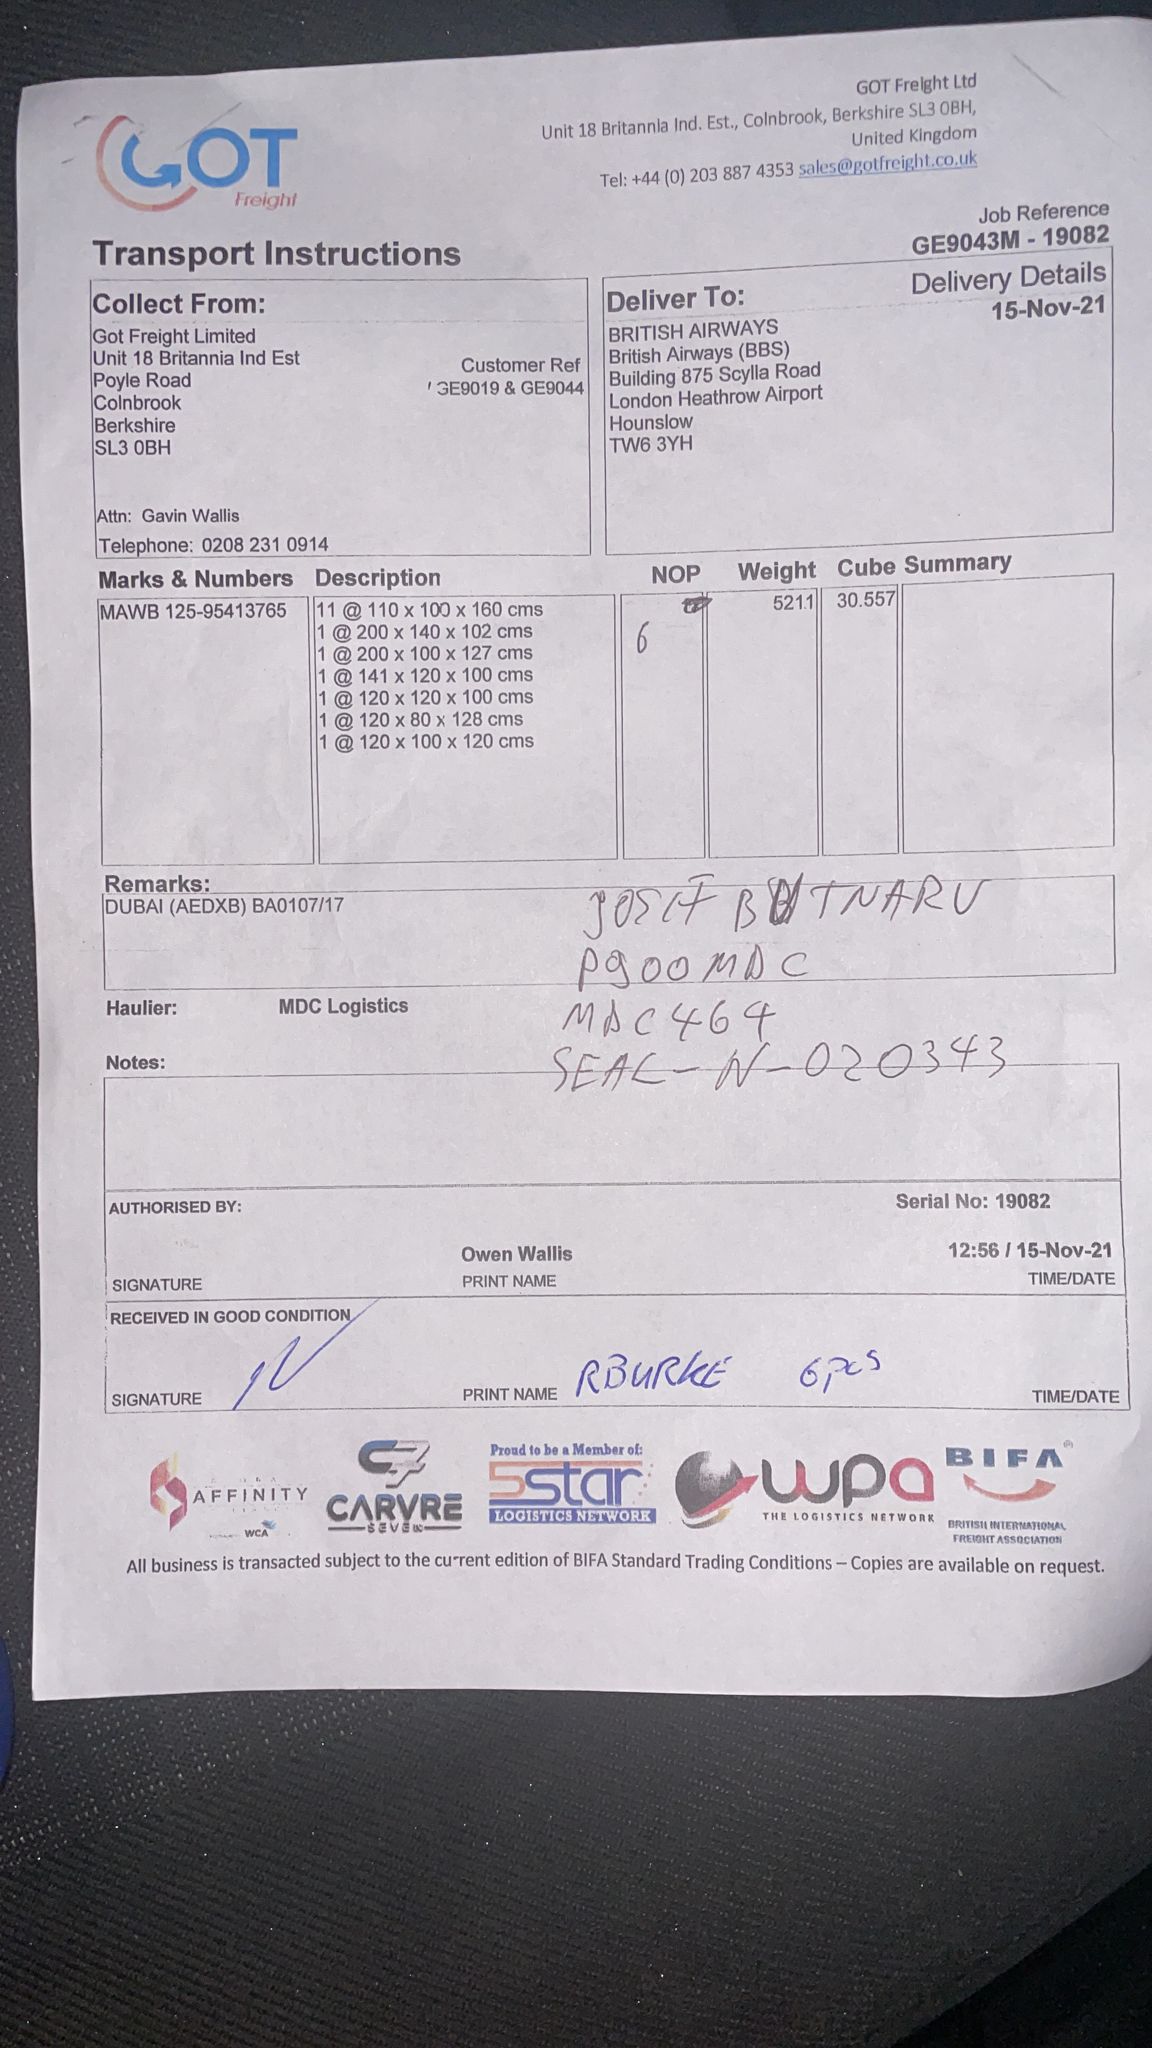 GOT Freight Ltd
Unit 18 Britannia Ind. Est., Colnbrook, Berkshire SL3 0BH,
United Kingdom
Tel: +44 (0) 203 887 4353 sales@gotfreight.co.uk
GOT
Freight
Job Reference
GE9043M - 19082
Transport Instructions
Collect From:
Got Freight Limited
Unit 18 Britannia Ind Est
Poyle Road
Colnbrook
Berkshire
SL3 0BH
Customer Ref
GE9019 & GE9044
Attn: Gavin Wallis
Telephone: 0208 231 0914
Deliver To:
Delivery Details
15-Nov-21
BRITISH AIRWAYS
British Airways (BBS)
Building 875 Scylla Road
London Heathrow Airport
Hounslow
TW6 3YH
Marks & Numbers Description NOP Weight Cube Summary
MAWB 125-95413765 11 @ 110 x 100 x 160 cms 30.557
1 @ 200 x 140 x 102 cms 6
1 @ 200 x 100 x 127 cms
1 @ 141 x 120 x 100 cms
1 @ 120 x 120 x 100 cms
1 @ 120 x 80 x 128 cms
1 @ 120 x 100 x 120 cms
Remarks:
DUBAI (AEDXB) BA0107/17
BUTNARU
P900MDC
Haulier: MDC Logistics
MDC464
SEAL-N-020343
Notes:
AUTHORISED BY:
Serial No: 19082
Owen Wallis 12:56 / 15-Nov-21
SIGNATURE PRINT NAME TIME/DATE
RECEIVED IN GOOD CONDITION
SIGNATURE PRINT NAME RBURKE 6pcs TIME/DATE
AFFINITY
WCA
CARVRE
SEVEN
Proud to be a Member of:
5star
LOGISTICS NETWORK
wpa
THE LOGISTICS NETWORK
BIFA
BRITISH INTERNATIONAL
FREIGHT ASSOCIATION
All business is transacted subject to the current edition of BIFA Standard Trading Conditions – Copies are available on request.